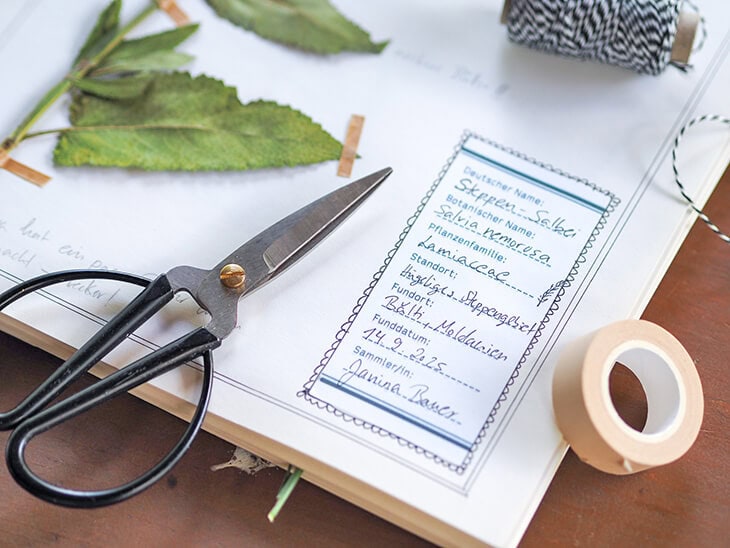 Deutscher Name:
Steppen-Salbei
Botanischer Name:
Salvia nemorosa
Pflanzenfamilie:
Lamiaceae
Standort:
Hügeliges Steppengebiet
Fundort:
Bălți, Moldawien
Funddatum:
14.9.2025
Sammler/in:
Janina Bauer
hat ein